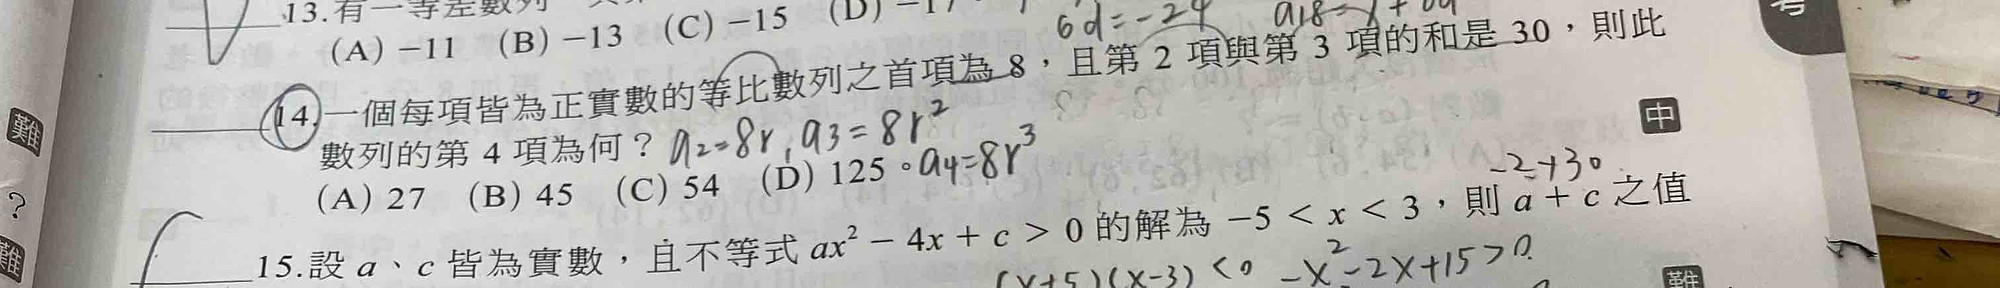 13.有一等差數列
(A) −11 (B) −13 (C) −15 (D) −17
6d=-24
14.一個每項皆為正實數的等比數列之首項為 8，且第 2 項與第 3 項的和是 30，則此
數列的第 4 項為何？ a2=8r, a3=8r²
(A) 27 (B) 45 (C) 54 (D) 125。a4=8r³
中
-2+30
15.設 a、c 皆為實數，且不等式 ax² − 4x + c > 0 的解為 −5 < x < 3，則 a + c 之值
(x+5)(x-3)<0 -x²-2x+15>0
難
難
?
難
考